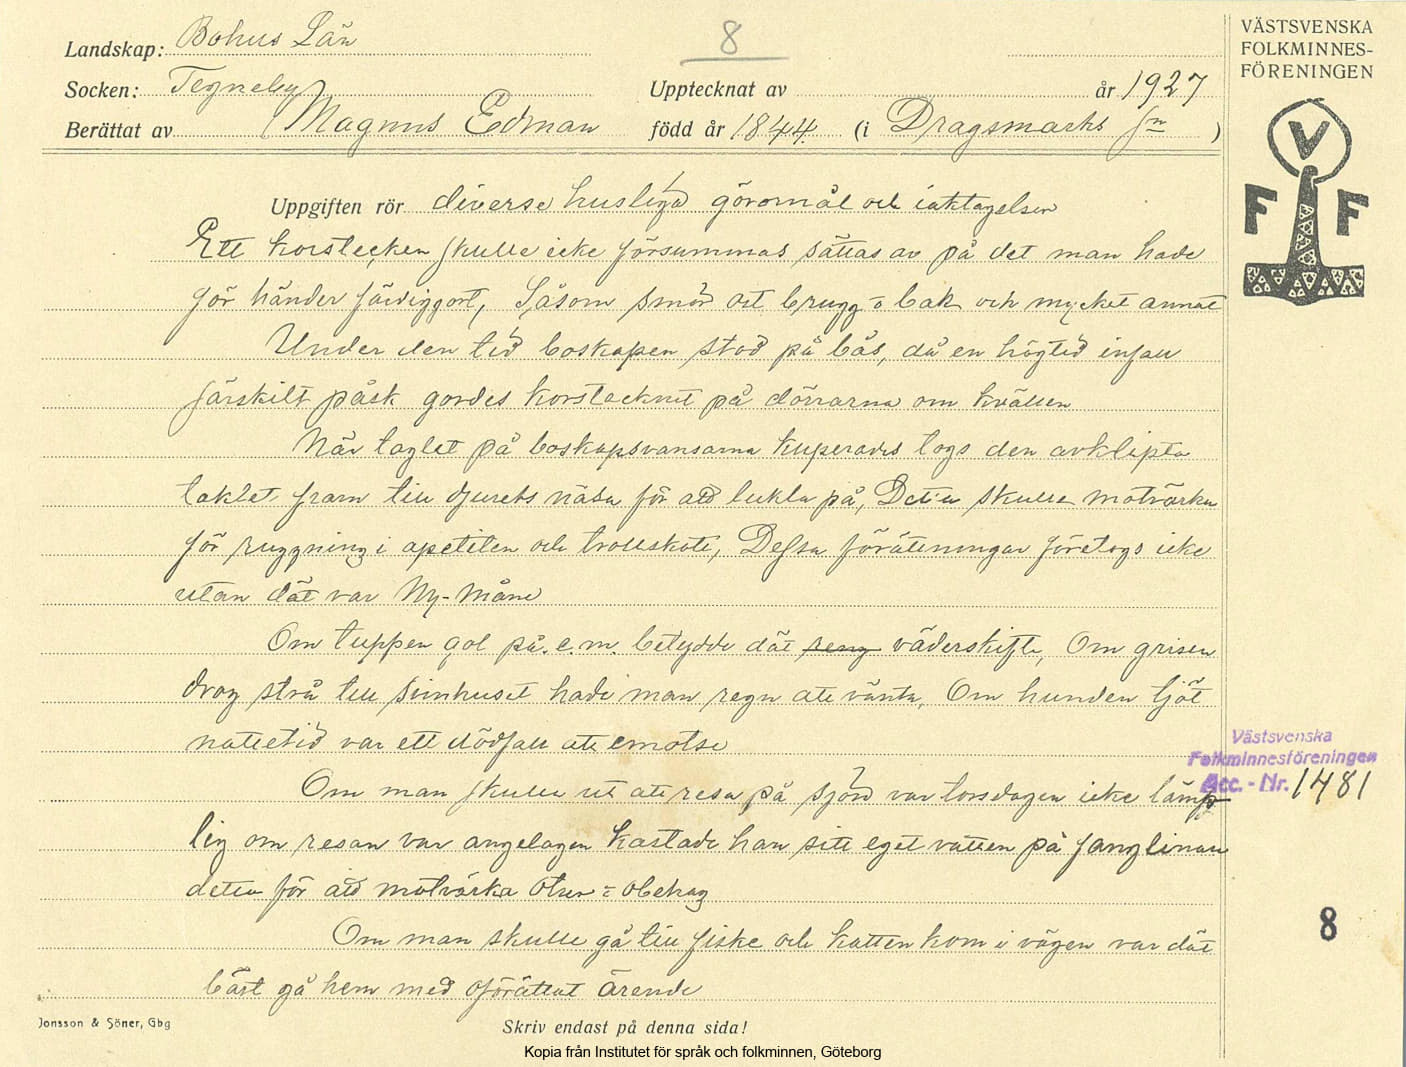 Landskap: Bohus Län
8
Socken: Tegneby
Upptecknat av år 1927
Berättat av Magnus Edman född år 1844. (i Dragsmarks sn )
VÄSTSVENSKA
FOLKMINNES-
FÖRENINGEN
V
F F
Uppgiften rör diverse husliga göromål och iaktagelser
Ett korstecken skulle icke försummas sättas av på det man hade
för händer färdiggort, Såsom smör ost brygg = bak och mycket annat
Under den tid boskapen stod på bås, då en högtid inföll
särskilt påsk gordes korstecknet på dörrarna om kvällen
När taglet på boskapsvansarna kuperades togs den avklipta
taklet fram till djurets näsa för att lukta på, Detta skulle motvärka
för ryggning i apetiten och trollskott, Dessa förättningar företogs icke
utan dät var Ny-Måne
Om tuppen gol på e.m. betydde dät reng väderskifte, Om grisen
drog strå till svinhuset hade man regn att vänta, Om hunden tjöt
nattetid var ett dödsfall att emotse
Om man skulle ut att resa på sjön var torsdagen icke lämp
lig om resan var angelagen kastade han sitt eget vatten på fanglinan
detta för att motvärka otur = obehag
Om man skulle gå till fiske och katten kom i vägen var dät
bäst gå hem med oförättat ärende
Västsvenska
Folkminnesföreningen
Acc. - Nr. 1481
8
Jonsson & Söner, Gbg
Skriv endast på denna sida!
Kopia från Institutet för språk och folkminnen, Göteborg